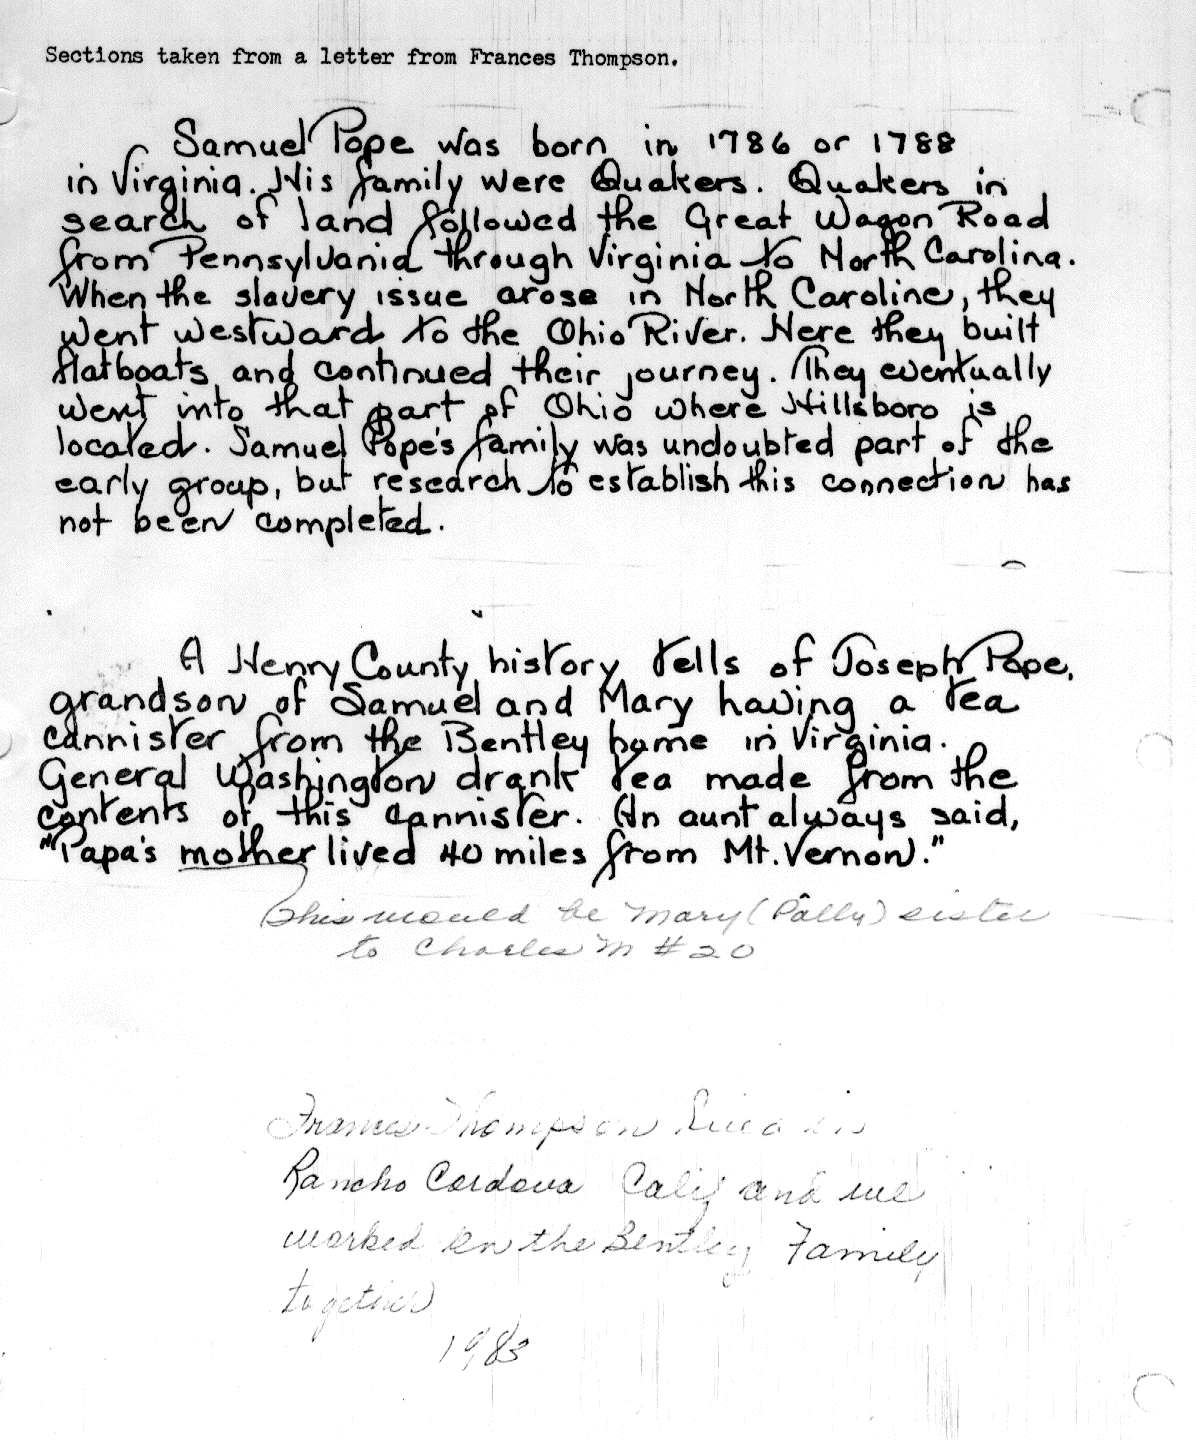 Sections taken from a letter from Frances Thompson.
Samuel Pope was born in 1786 or 1788
in Virginia. His family were Quakers. Quakers in
search of land followed the Great Wagon Road
from Pennsylvania through Virginia to North Carolina.
When the slavery issue arose in North Caroline, they
went westward to the Ohio River. Here they built
flatboats and continued their journey. They eventually
went into that part of Ohio where Hillsboro is
located. Samuel Pope's family was undoubted part of the
early group, but research to establish this connection has
not been completed.
A Henry County history tells of Joseph Pope,
grandson of Samuel and Mary having a tea
cannister from the Bentley home in Virginia.
General Washington drank tea made from the
contents of this cannister. An aunt always said,
"Papa's mother lived 40 miles from Mt. Vernon."
This would be Mary (Polly) sister
to Charles M #20
Frances Thompson lived in
Rancho Cordova Calif and we
worked on the Bentley Family
together
1983